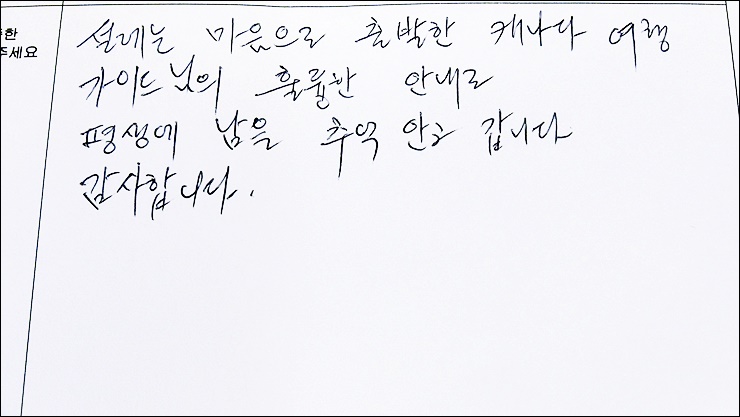 한
주세요
설레는 마음으로 출발한 캐나다 여행
가이드님의 훌륭한 안내로
평생에 남을 추억 안고 갑니다
감사합니다.